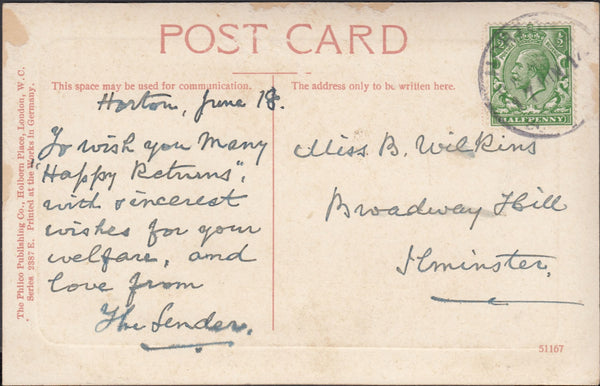 POST CARD
This space may be used for communication.
The address only to be written here.
Horton, June 18.
To wish you Many
"Happy Returns",
with sincerest
wishes for your
welfare, and
love from
The Sender.
Miss B. Wilkins
Broadway Hill
Ilminster.
HALFPENNY
The Philco Publishing Co., Holborn Place, London, W. C.
Series 2387 E. Printed at the Works in Germany.
51167